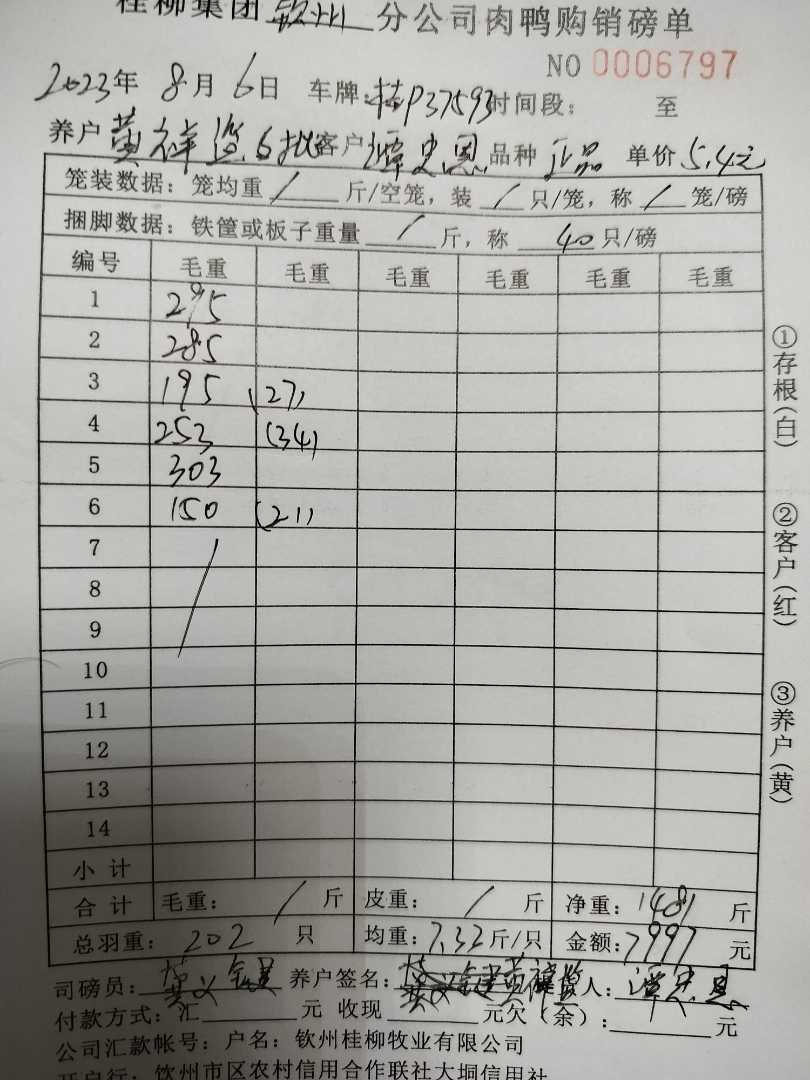 桂柳集团 钦州 分公司肉鸭购销磅单
NO 0006797
2023年 8月 6日 车牌:桂P37593 时间段: 至
养户 黄祥 6批 客户 谭忠恩 品种 正品 单价 5.4元
笼装数据: 笼均重 / 斤/空笼, 装 / 只/笼, 称 / 笼/磅
捆脚数据: 铁筐或板子重量 / 斤, 称 40 只/磅
编号 毛重 毛重 毛重 毛重 毛重 毛重
1 295
2 285
3 195 (27)
4 253 (34)
5 303
6 150 (21)
7
8
9
10
11
12
13
14
小计
合计 毛重: / 斤 皮重: / 斤 净重: 1481 斤
总羽重: 202 只 均重: 7.33斤/只 金额: 7997 元
司磅员: 养户签名: 人:
付款方式: 汇 元 收现 元欠(余): 元
公司汇款帐号: 户名: 钦州桂柳牧业有限公司
开户行: 钦州市区农村信用合作联社大垌信用社
①存根(白)
②客户(红)
③养户(黄)